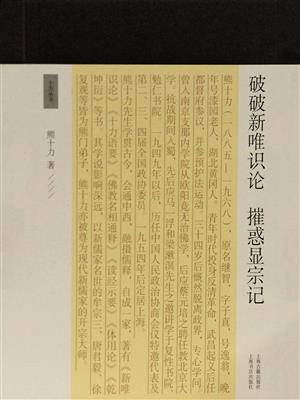 破破新唯识论 摧惑显宗记
上海古籍出版社
上海书店出版社
熊十力(一八八五—一九六八),原名继智,字子真,号逸翁,晚
年号漆园老人,湖北黄冈人。青年时代投身反清革命,武昌起义后
都督府参议,并参预护法运动。三十四岁后慨然脱离政界,专心学问,
曾入南京支那内学院从欧阳竟无治佛学,后应蔡元培之聘任教北京大
学。抗战期间入蜀,先后应马一浮和梁漱溟先生之邀讲学于复性书院、
勉仁书院。一九四九年以后,历任中国人民政治协商会议特邀代表及
第二、三、四届全国政协委员。一九五四年后定居上海。
熊十力先生学贯古今,会通中西,融摄儒释,自成一家,著有《新唯
识论》《十力语要》《佛教名相通释》《读经示要》《体用论》《乾
坤衍》等书,其学说影响深远,以新儒家名世的牟宗三、唐君毅、徐
复观等皆为熊门弟子,熊十力亦被尊为现代新儒家的开宗大师
十力丛书
熊十力 著